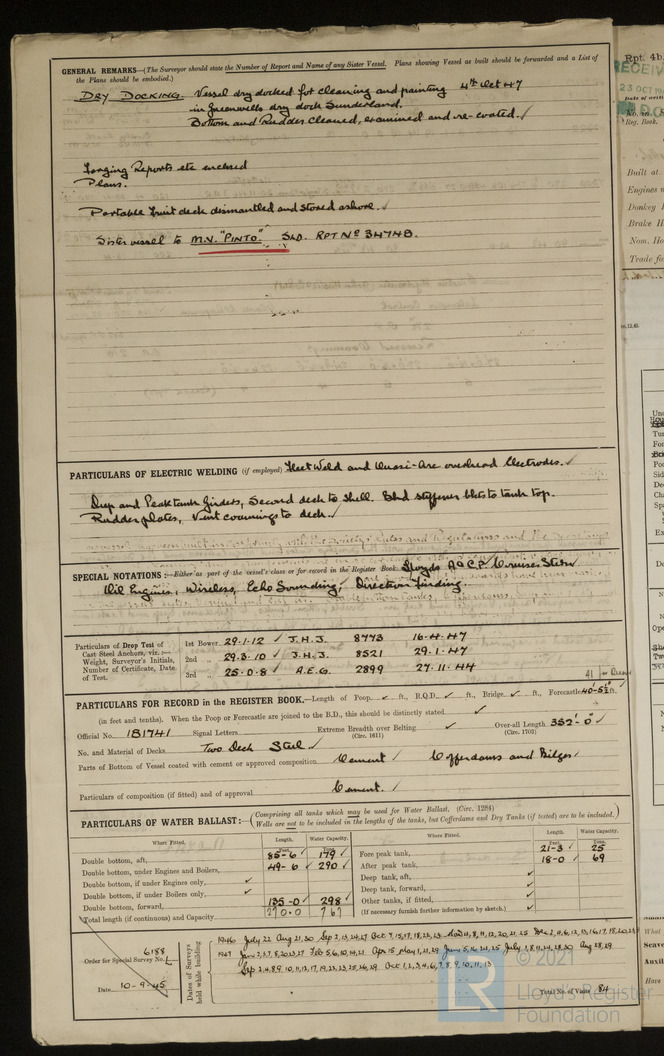 GENERAL REMARKS—(The Surveyor should state the Number of Report and Name of any Sister Vessel. Plans showing Vessel as built should be forwarded and a List of
the Plans should be embodied.)
DRY DOCKING. Vessel dry docked for cleaning and painting 4th Oct 47
in Greenwells dry dock Sunderland.
Bottom and Rudder cleaned, examined and re-coated. ✓
Forging Reports etc enclosed
Plans.
Portable fruit deck dismantled and stored ashore. ✓
Sister vessel to M.V. "PINTO". SLD. RPT No 34748.
PARTICULARS OF ELECTRIC WELDING (if employed) Fleet Weld and Quasi-Arc overhead Electrodes. ✓
Deep and Peak tank girders, Second deck to shell. Bhd stiffener bkts to tank top.
Rudder plates, Vent coamings to deck. ✓
SPECIAL NOTATIONS:—Either as part of the vessel's class or for record in the Register Book. Lloyds A&CP Cruiser Stern
Oil Engines, Wireless, Echo Sounding, Direction Finding.
Particulars of Drop Test of
Cast Steel Anchors, viz.:—
Weight, Surveyor's Initials,
Number of Certificate, Date
of Test.
1st Bower 29.1.12 ✓ J.H.J. 8773 16.4.47
2nd " 29.3.10 ✓ J.H.J. 8521 29.1.47
3rd " 25.0.8 ✓ A.E.G. 2899 27.11.44
41
PARTICULARS FOR RECORD in the REGISTER BOOK.—Length of Poop ✓ ft., R.Q.D. ✓ ft., Bridge ✓ ft., Forecastle 40-5½ ft.
(in feet and tenths). When the Poop or Forecastle are joined to the B.D., this should be distinctly stated ✓
Official No. 181741 Signal Letters Extreme Breadth over Belting ✓ Over-all Length 352'-0"
(Circ. 1611) (Circ. 1703)
No. and Material of Decks Two Deck Steel ✓
Parts of Bottom of Vessel coated with cement or approved composition Cement ✓ Cofferdams and Bilges
Particulars of composition (if fitted) and of approval Cement. ✓
PARTICULARS OF WATER BALLAST:—(Comprising all tanks which may be used for Water Ballast. (Circ. 1284)
Wells are not to be included in the lengths of the tanks, but Cofferdams and Dry Tanks (if tested) are to be included.)
Where Fitted. Length. Water Capacity. Where Fitted. Length. Water Capacity.
Feet. Tons. Feet. Tons.
Double bottom, aft, 85-6 ✓ 179 ✓ Fore peak tank, 21-3 ✓ 25
Double bottom, under Engines and Boilers, 49-6 ✓ 290 ✓ After peak tank, 18-0 ✓ 69
Double bottom, if under Engines only, ✓ Deep tank, aft, ✓
Double bottom, if under Boilers only, ✓ Deep tank, forward, ✓
Double bottom, forward, 135-0 ✓ 298 ✓ Other tanks, if fitted, ✓
Total length (if continuous) and Capacity 270.0 767 (If necessary furnish further information by sketch.) ✓
Order for Special Survey No. 6188
Date 10-9-45
Dates of Surveys
held while building
1946 July 22 Aug 21,30 Sep 2,13,24,27 Oct 7,15,17,18,23
1947
Sep 2,4,8,9,10,11,12,17,19,22,23,25,26,29 Oct 1,2,3,4,6,7,8,9,10,11,13
Total No. of Visits 84
© 2021
LR
Lloyd's Register
Foundation
Rpt. 4b.
RECEIV
23 OCT 19
Date of writ
Reg. Book.
Built at
Engines
Donkey
Brake H
Nom. Ho
Trade for